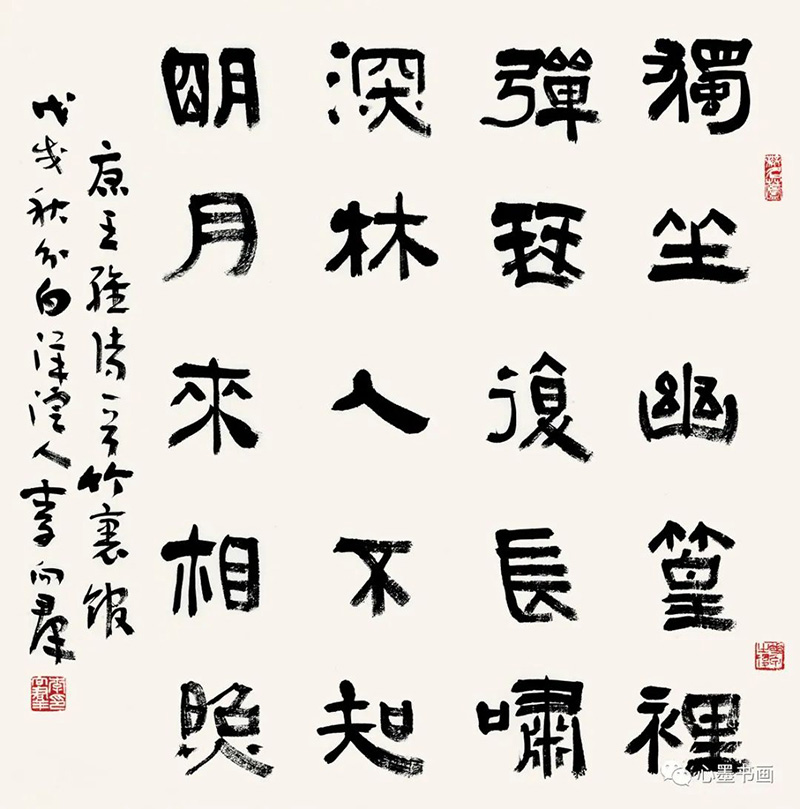 獨坐幽篁裡
彈琴復長嘯
深林人不知
明月來相照
唐王維詩一首竹裏館
戊戌秋分白洋淀人李向群
心墨书画